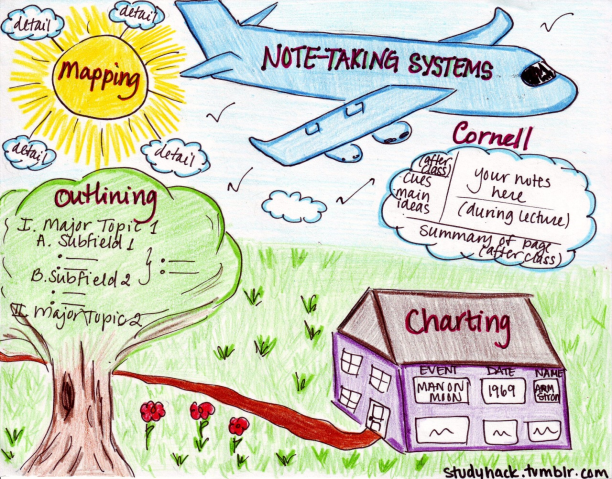 detail
detail
mapping
detail
detail
NOTE-TAKING SYSTEMS
Cornell
(after class)
cues
main
ideas
your notes
here
(during lecture)
summary of page
(after class)
Outlining
I. Major Topic 1
A. Subfield 1
B. Subfield 2
II. Major Topic 2
Charting
EVENT DATE NAME
MAN ON
MOON
1969
ARM
STRON
studyhack.tumblr.com